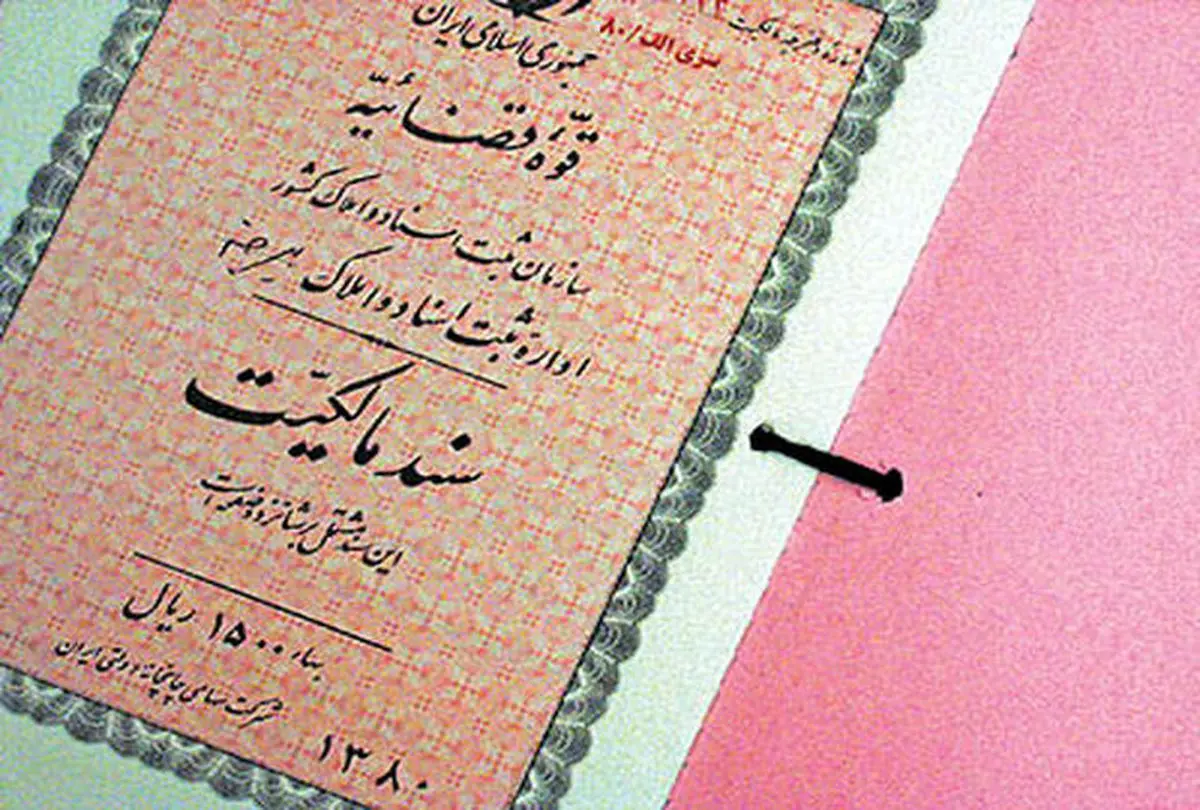 شماره دفترچه مالکیت
سری الف/۸۰
جمهوری اسلامی ایران
قوّهٔ قضائیّه
سازمان ثبت اسناد و املاک کشور
اداره ثبت اسناد و املاک
سند مالکیّت
این سند مشتمل بر شانزده صفحه است
بهاء ۱۵۰۰ ریال
شرکت سهامی چاپخانه دولتی ایران
۱۳۸۰